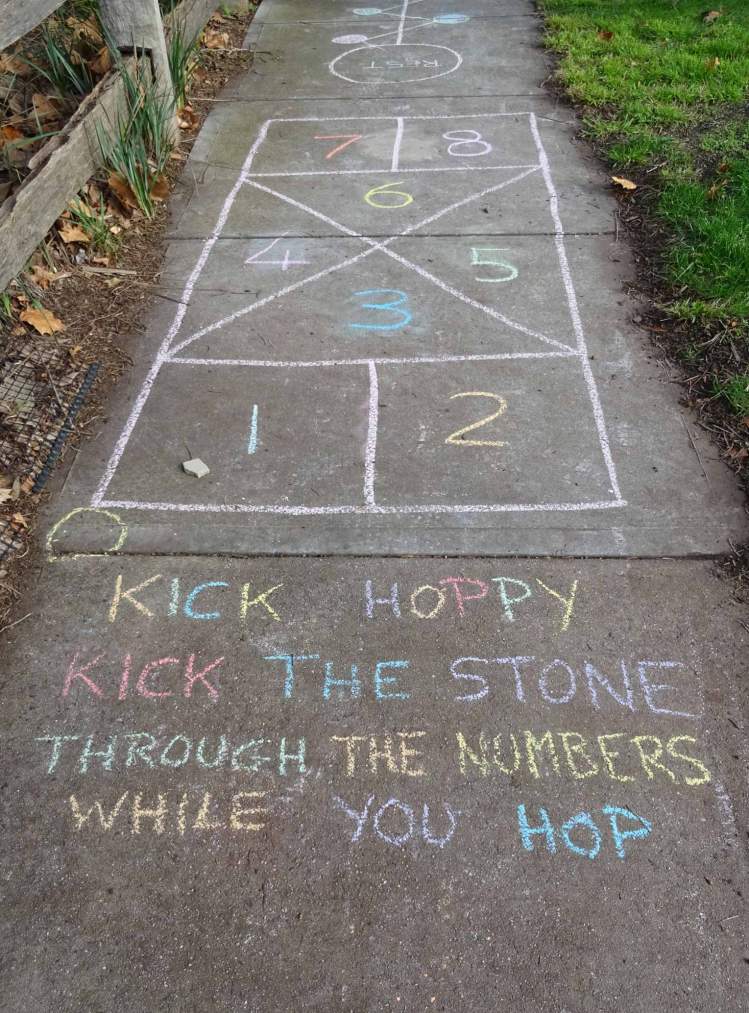 REST
7 8
6
4 5
3
1 2
KICK HOPPY
KICK THE STONE
THROUGH THE NUMBERS
WHILE YOU HOP